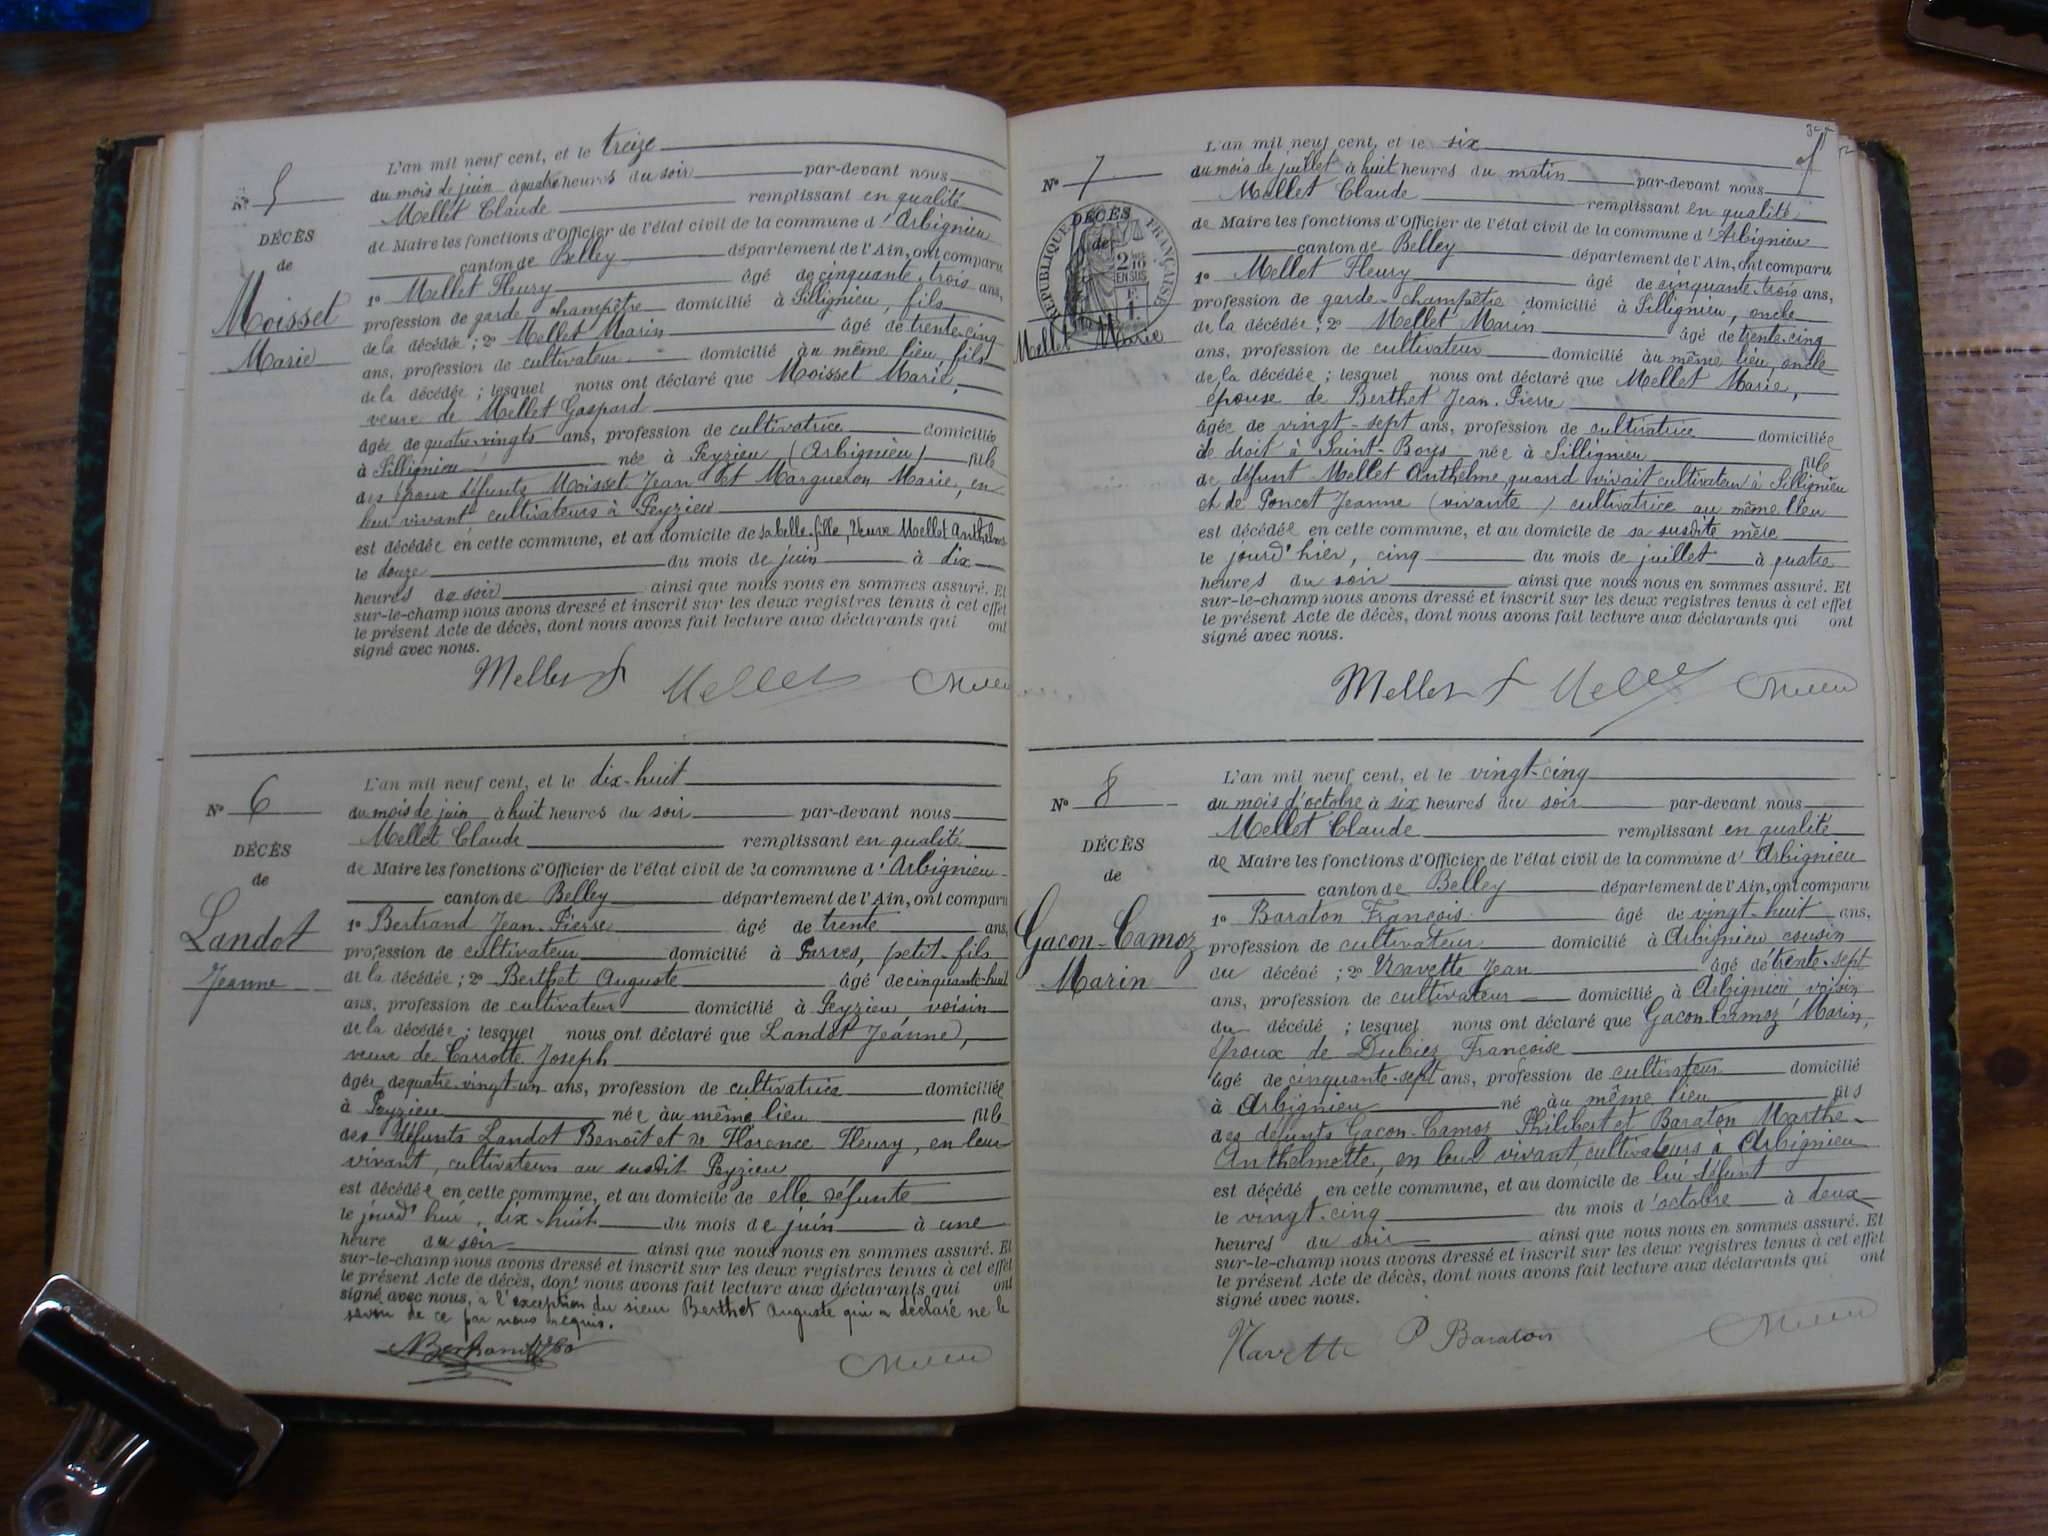 L'an mil neuf cent, et le treize
N° 5
du mois de juin à quatre heures du soir par-devant nous
Mellet Claude remplissant en qualité
DÉCÈS
de Maire les fonctions d'Officier de l'état civil de la commune d'Arbignieu
de
canton de Belley département de l'Ain, ont comparu
Moisset
Marie
1° Mellet Fleury âgé de cinquante-trois ans,
profession de garde-champêtre domicilié à Sillignieu, fils
de la décédée ; 2° Mellet Marin âgé de trente-cinq
ans, profession de cultivateur domicilié au même lieu, fils
de la décédée ; lesquel nous ont déclaré que Moisset Marie,
veuve de Mellet Gaspard
âgée de quatre-vingts ans, profession de cultivatrice domiciliée
à Sillignieu née à Peyzieu (Arbignieu) fille
des époux défunts Moisset Jean et Margueron Marie, en
leur vivant cultivateurs à Peyzieu
est décédée en cette commune, et au domicile de sa belle-fille, Veuve Mellet Anthelme
le douze du mois de juin à dix
heures du soir ainsi que nous nous en sommes assuré. Et
sur-le-champ nous avons dressé et inscrit sur les deux registres tenus à cet effet
le présent Acte de décès, dont nous avons fait lecture aux déclarants qui ont
signé avec nous.
Mellet f Mellet
L'an mil neuf cent, et le dix-huit
N° 6
du mois de juin à huit heures du soir par-devant nous
Mellet Claude remplissant en qualité
DÉCÈS
de Maire les fonctions d'Officier de l'état civil de la commune d'Arbignieu
de
canton de Belley département de l'Ain, ont comparu
Landot
Jeanne
1° Bertrand Jean-Pierre âgé de trente ans,
profession de cultivateur domicilié à Parves, petit-fils
de la décédée ; 2° Berthet Auguste âgé de cinquante-huit
ans, profession de cultivateur domicilié à Peyzieu, voisin
de la décédée ; lesquel nous ont déclaré que Landot Jeanne,
veuve de Carrotte Joseph
âgée de quatre-vingt-un ans, profession de cultivatrice domiciliée
à Peyzieu née au même lieu fille
des défunts Landot Benoît et de Florence Fleury, en leur
vivant, cultivateurs au susdit Peyzieu
est décédée en cette commune, et au domicile de elle défunte
le jourd'hui, dix-huit du mois de juin à une
heure du soir ainsi que nous nous en sommes assuré. Et
sur-le-champ nous avons dressé et inscrit sur les deux registres tenus à cet effet
le présent Acte de décès, dont nous avons fait lecture aux déclarants qui ont
signé avec nous, à l'exception du sieur Berthet Auguste qui a déclaré ne le
savoir de ce par nous requis.
L'an mil neuf cent, et le six
N° 7
du mois de juillet à huit heures du matin par-devant nous
Mellet Claude remplissant en qualité
DÉCÈS
de
RÉPUBLIQUE FRANÇAISE
2/10 EN SUS
1 F
de Maire les fonctions d'Officier de l'état civil de la commune d'Arbignieu
canton de Belley département de l'Ain, ont comparu
Mellet Marie
1° Mellet Fleury âgé de cinquante-trois ans,
profession de garde-champêtre domicilié à Sillignieu, oncle
de la décédée ; 2° Mellet Marin âgé de trente-cinq
ans, profession de cultivateur domicilié au même lieu, oncle
de la décédée ; lesquel nous ont déclaré que Mellet Marie,
épouse de Berthet Jean-Pierre
âgée de vingt-sept ans, profession de cultivatrice domiciliée
de droit à Saint-Boys née à Sillignieu fille
de défunt Mellet Anthelme quand vivait cultivateur à Sillignieu
et de Poncet Jeanne (vivante) cultivatrice au même lieu
est décédée en cette commune, et au domicile de sa susdite mère
le jourd'hier, cinq du mois de juillet à quatre
heures du soir ainsi que nous nous en sommes assuré. Et
sur-le-champ nous avons dressé et inscrit sur les deux registres tenus à cet effet
le présent Acte de décès, dont nous avons fait lecture aux déclarants qui ont
signé avec nous.
Mellet f Mellet
L'an mil neuf cent, et le vingt-cinq
N° 8
du mois d'octobre à six heures du soir par-devant nous
Mellet Claude remplissant en qualité
DÉCÈS
de Maire les fonctions d'Officier de l'état civil de la commune d'Arbignieu
de
canton de Belley département de l'Ain, ont comparu
Gacon-Camoz
Marin
1° Baraton François âgé de vingt-huit ans,
profession de cultivateur domicilié à Arbignieu cousin
du décédé ; 2° Navette Jean âgé de trente-sept
ans, profession de cultivateur domicilié à Arbignieu voisin
du décédé ; lesquel nous ont déclaré que Gacon-Camoz Marin,
époux de Dubiez Françoise
âgé de cinquante-sept ans, profession de cultivateur domicilié
à Arbignieu né au même lieu fils
des défunts Gacon-Camoz Philibert et Baraton Marthe-
Anthelmette, en leur vivant, cultivateurs à Arbignieu
est décédé en cette commune, et au domicile de lui défunt
le vingt-cinq du mois d'octobre à deux
heures du soir ainsi que nous nous en sommes assuré. Et
sur-le-champ nous avons dressé et inscrit sur les deux registres tenus à cet effet
le présent Acte de décès, dont nous avons fait lecture aux déclarants qui ont
signé avec nous.
Navette Baraton